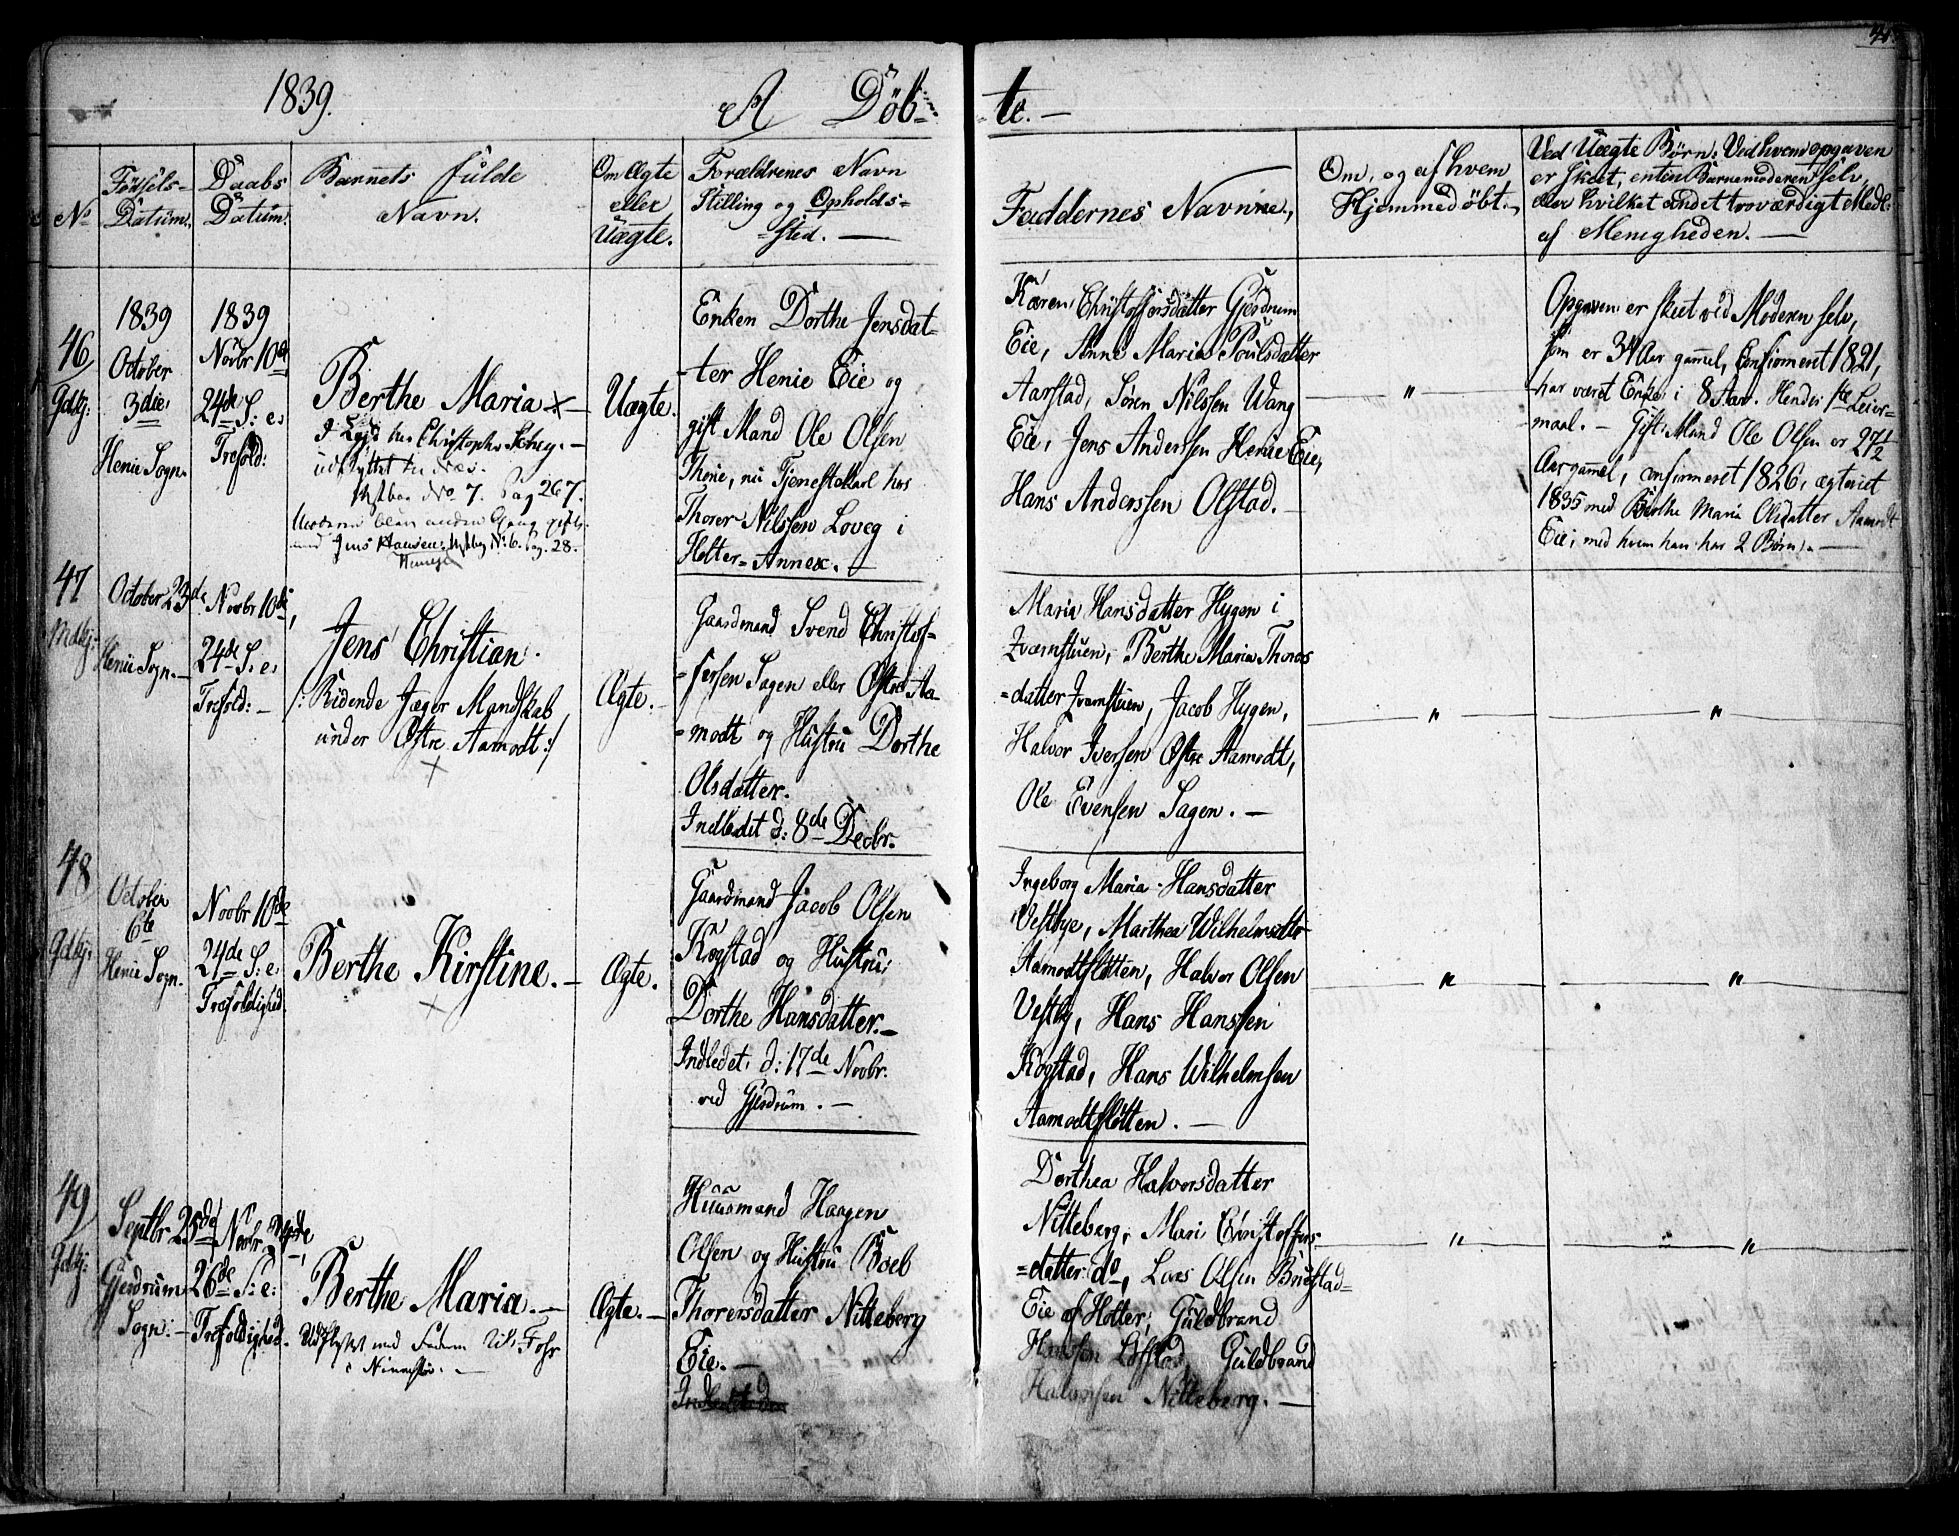 1839.
A Döb-
-te.-
No
Födsels-
Datum.
Daabs
Datum.
Barnets fulde
Navn.
Om Ægte
eller
Uægte.
Forældrenes Navn
Stilling og Opholds-
-sted. —
Faddernes Navne.,
Om, og af hvem
Hjemmedöbt.
Ved Uægte Børn: Ved hvem opgaven
er skeet, enten Barnemoderen selv,
eller hvilket andet troværdigt Medl:
af Menigheden. —
46
Gdkj:
1839
October
3die
Henie Sogn
1839
Novbr 10de
24de S: e:
Trefold:
Berthe Maria
Uægte.
Enken Dorthe Jensdat-
-ter Henie Eie og
gift Mand Ole Olsen
Thorie, nu Tjenestekarl hos
Thorer Nilssen Loveg i
Holter-Annex. —
Karen Christoffersdatter Gjerdrum
Eie, Anne Maria Poulsdatter
Aarstad, Søren Nilssen Wang
Eie, Jens Anderssen Henie Eie,
Hans Anderssen Olstad. —
"
Opgaven er skeet ved Moderen selv,
som er 34 Aar gammel, Confirmeret 1821,
har været Enke i 8 Aar. Hendes 1te Leier-
maal. — Gift Mand Ole Olsen er 27 1/2
Aar gammel, confirmeret 1826, ægteviet
1835 med Berthe Maria Olsdatter Aamodt
Eie, med hvem han har 2 Børn. —
udflyttet
No 7. Pag 267.
Moderen blev anden Gang gift
med Jens Hansen No 6. Pag. 28.
47
Mdkj:
October 23de
Henie Sogn. —
Novbr 10de,
24de S. e.
Trefold: —
Jens Christian.
/: Ridende Jæger Mandskab
under Østre Aamodt :/
Ægte. —
Gaardmand Svend Christof-
-fersen Sagen eller Østre Aa-
-modt og Hustru Dorthe
Olsdatter.
Indledet d: 8de Decbr.
Maria Hansdatter Hygen i
Kværnstuen, Berthe Maria Thores
-datter Kværnstuen, Jacob Hygen,
Halvor Iversen Østre Aamodt,
Ole Evensen Sagen. —
"
"
48
Gdkj:
October
6te
Henie Sogn.
Novbr 10de
24de S: e:
Trefoldighed.
Berthe Kirstine. —
Ægte.
Gaardmand Jacob Olsen
Kogstad og Hustru
Dorthe Hansdatter. —
Indledet d: 17de Novbr.
ved Gjerdrum. —
Ingeborg Maria Hansdatter
Vestbye, Marthea Wilhelmsdtr
Aamodtsletten, Halvor Olsen
Vestby, Hans Hanssen
Kogstad, Hans Wilhelmsen
Aamodtsletten. —
"
"
49
Gdkj:
Septbr 25de
Gjerdrum
Sogn: —
Novbr 24de,
26de S: e:
Trefoldighed.
Berthe Maria. —
Udflyttet med
Ægte. —
Huusmand Haagen
Olsen og Hustru Boeb
Thorersdatter Nitteberg
Eie. —
Dorthea Halvorsdatter
Nitteberg, Mari Christoffers
-datter do, Lars Olsen Brustad-
Eie af Holter, Guldbrand
Hanssen Guldbrand
Halvorsen Nitteberg. —
"
"